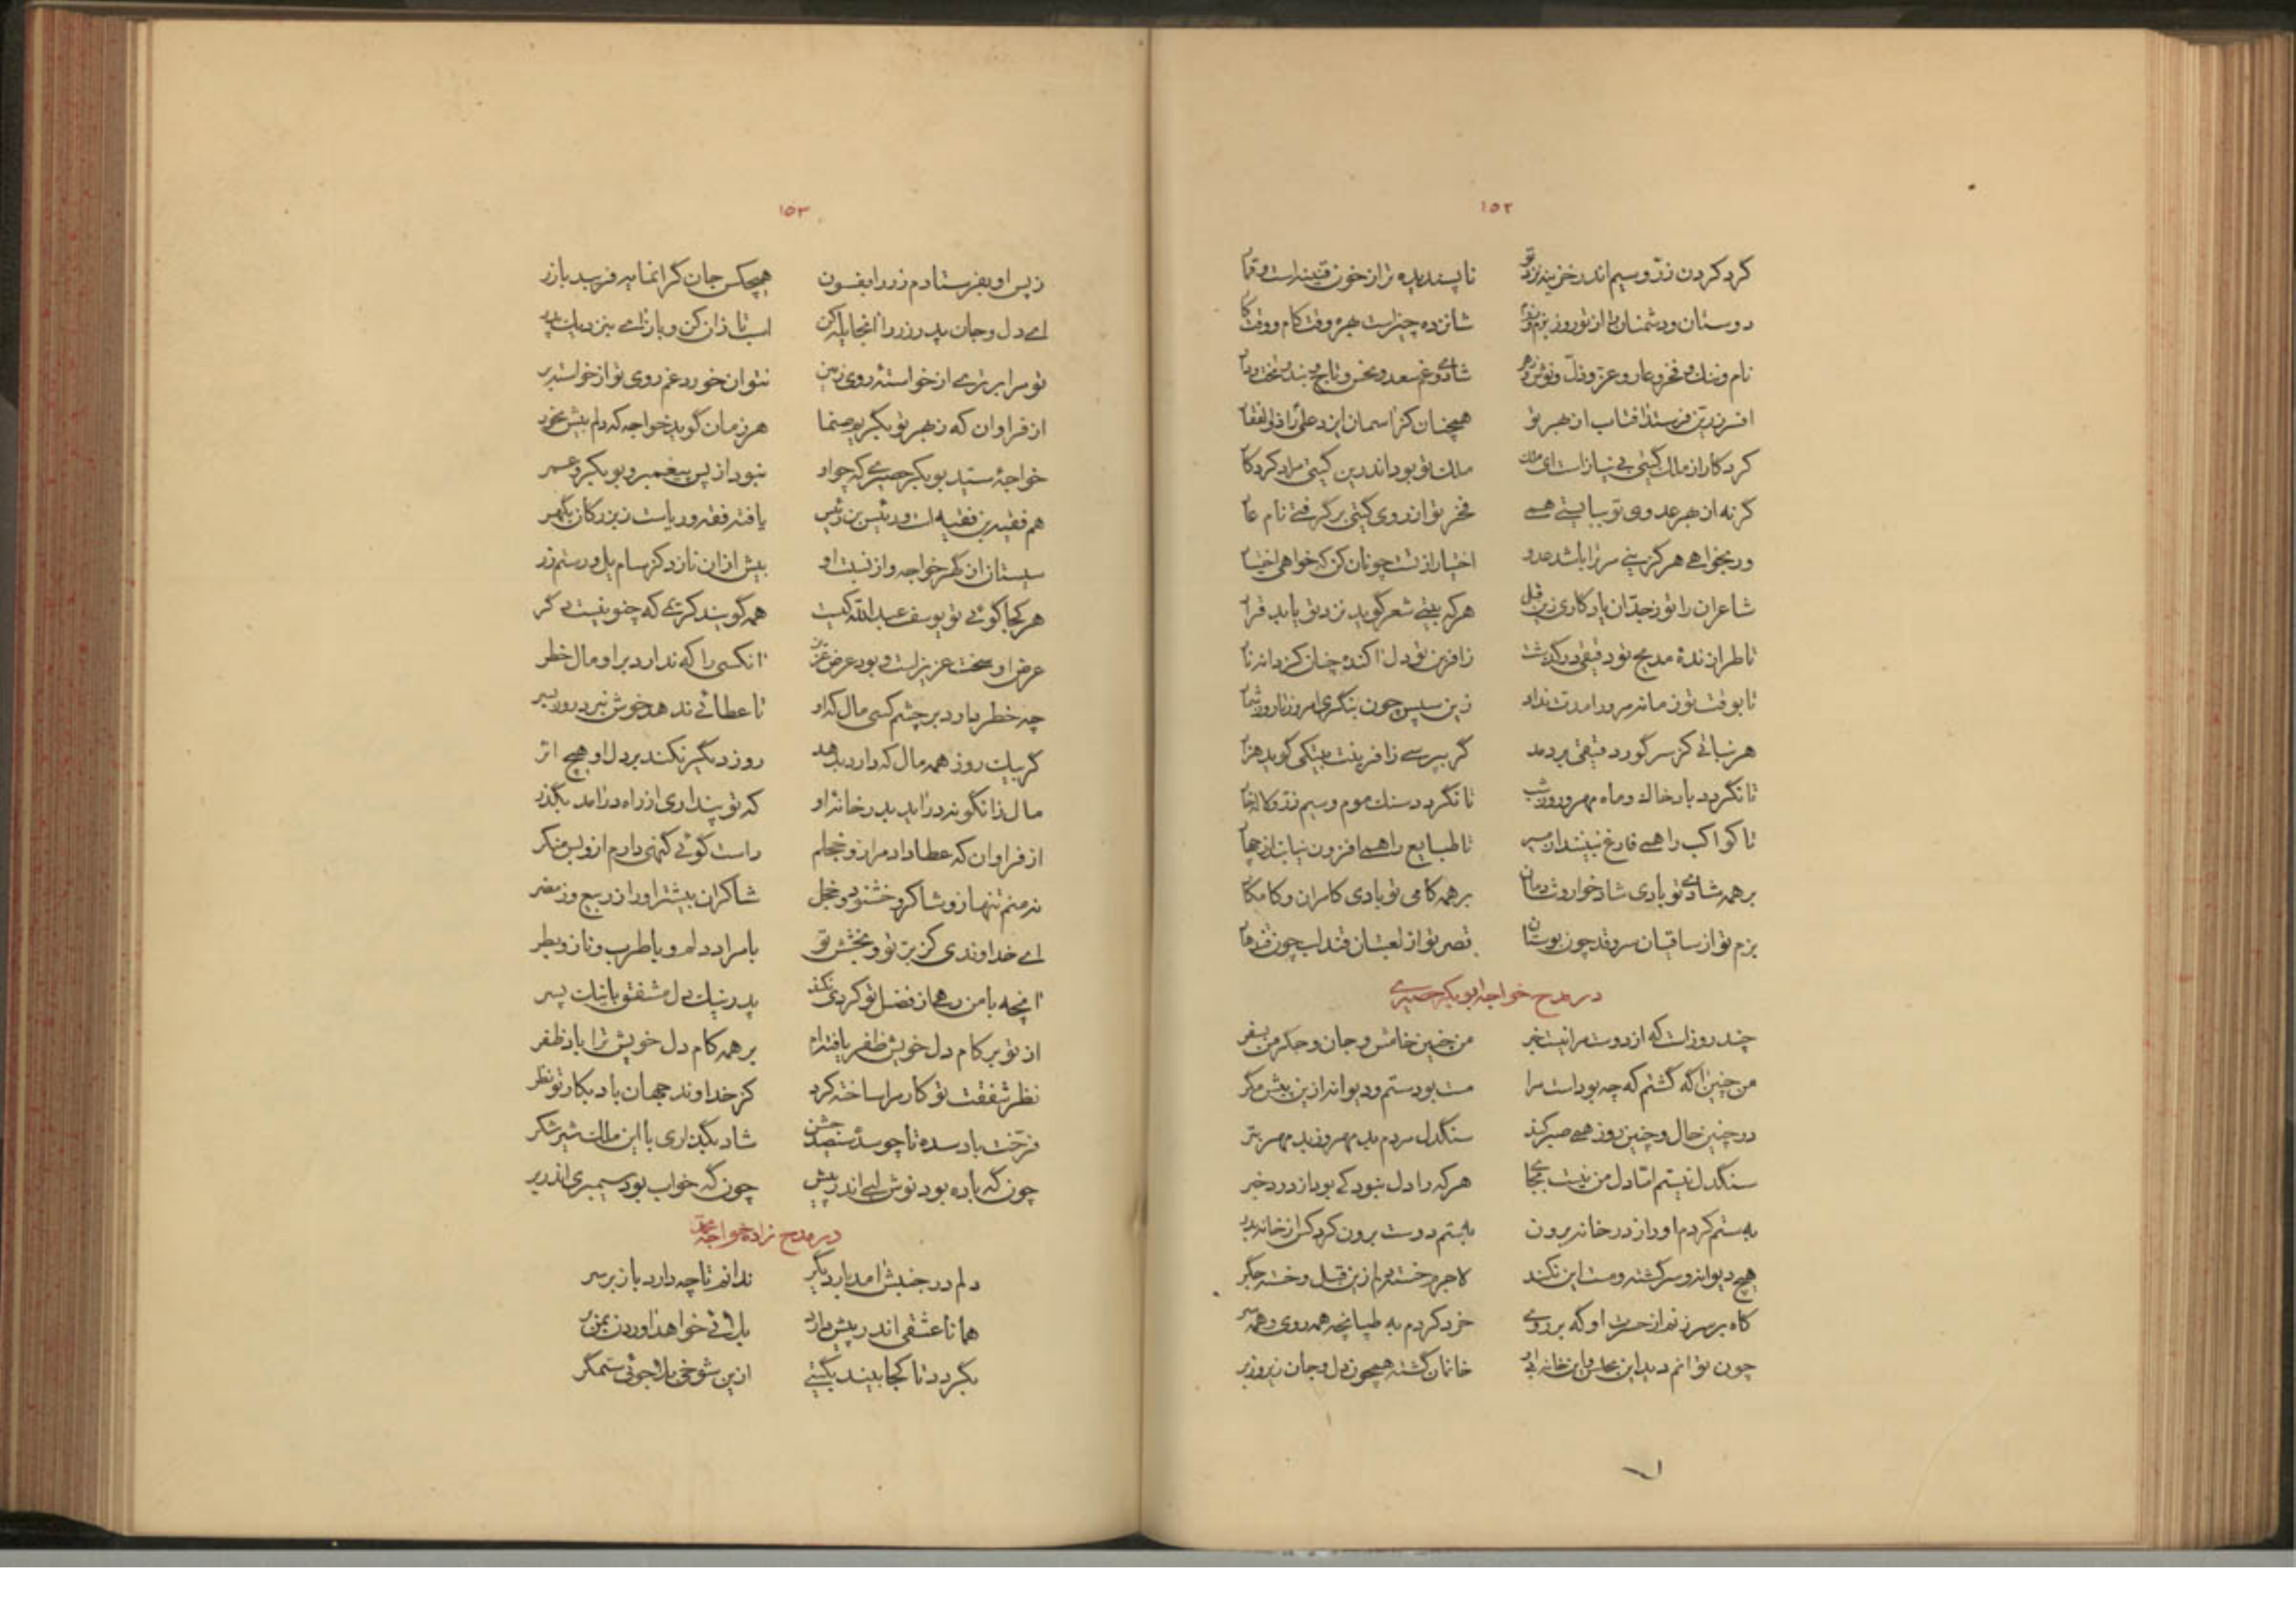 ١٥٢
گرد کردن زر و سیم اندر خزینه نزد تو ناپسندیده تر از خون قنینه است و قمار
دوستان و دشمنان را از تو روز بزم و رزم شانزده چیز است بهره وقت کام و وقت کار
نام و ننگ و فخر و عار و عز و ذل و نوش و زهر شادی و غم سعد و نحس و تاج و بند و تخت و دار
افسر زرین فرستد افتاب از بهر تو همچنان کز اسمان ایزد علی را ذوالفقار
کردکار از ملک گیتی بی نیاز است ای ملک ملک تو بود اندرین گیتی مراد کردکار
گر نه از بهر عدوی تو ببایستی همی فخر تو از روی گیتی برگرفتی نام عار
ور بخواهی هرگز بنی سرزا باشد عدو اختیار از تست چونان کن که خواهی اختیار
شاعران را تو زجدان یادکاری زین قبل هر که بیتی شعر گوید نزد تو یابد قرار
تا طرازندهٔ مدیح تو دقیقی درگذشت زافرین تو دل اکنده چنان کز دانه نار
تا بوقت تو زمانه مرورا مدت نداد زین سپس چون بنگری امروز تا روز شمار
هر نباتی کز سر گور دقیقی بردمد گر بپرسی زافرینت بیتکی گوید هزار
تا نگردد باد خاک و ماه مهر و روز شب تا نگردد سنک موم و سیم زر و لاله خار
تا کواکب را همی فارغ نبینند از مسیر تا طبایع را همی افزون نیابند از چهار
بر همه شادی تو بادی شادخوار و شادمان بر همه کامی تو بادی کامران و کامکار
بزم تو از ساقیان سرو قد چون بوستان قصر تو از لعبتان قند لب چون قندهار
در مدح خواجه ابوبکر حصیری
چند روز است که از دوست مرا نیست خبر من چنین خامش و جان و جکر من بسفر
من چنین اکه گشتم که چه بوداست مرا مست بودستم و دیوانه ازین پیش مگر
در چنین حال و چنین روز همی صبر کند سنگدل مردم بد مهر وز بد مهر بتر
سنگدل نیستم اما دل من نیست بجای هر که را دل نبود کی بود از درد خبر
به ستم کردم او را ز در خانه برون به ستم دوست برون کرد کس از خانه بدر
هیچ دیوانه و سرگشته و مست این نکند لاجرم خسته دلم زین قبل و خسته جگر
کاه بر سر زنم از حسرت او که بر روی خرد کردم به طپانچه همه روی و همه سر
چون توانم دید این مجلس و این خانه او خانمان گشته همچون دل و جان زیر و زبر
١٥٣
ز پس او بفرستادم زر را بفسون هیچکس جان گرانمایه فریبد بازر
ای دل و جان پدر زر را انجا یله کن اسب تازان کن و بازای بنزدیک پدر
تو مرا برتری از خواستهٔ روی زمین نتوان خورد غم روی تو از خواسته بر
از فراوان که ز بهر تو بگریم صنما هر زمان گوید خواجه که دلم بیش مخور
خواجهٔ سید بوبکر حصیری که چو او نبود از پس پیغمبر و بوبکر و عمر
هم فقیه بن فقیه است و رئیس بن رئیس یافته فقه و ریاست ز بزرکان بگهر
سیستان از گهر خواجه و از نسبت او بیش از ان نازد کز سام یل و رستم زر
هر کجا گوئی تو یوسف عبدالله کیست همه گویند کریمی که چنو نیست دگر
عرض او سخت عزیز است و بود عرض عزیز انکسی را که ندارد بر او مال خطر
چه خطر دارد بر چشم کسی مال که او تا عطائی ندهد خوش نبرد روز بسر
گر بیک روز همه مال که دارد بدهد روز دیگر نکند بر دل او هیچ اثر
مال زانگونه دراید بدر خانه او که تو پنداری از راه درامد بگذر
از فراوان که عطا داد مرا زو خجلم راست گوئی گنهی دارم ازو بس منکر
نه منم تنها زو شاکر و خشنود و خجل شاکران بیشتر او را ز ربیع و ز مضر
ای خداوندی کز بر تو و بخشش تو با مراد دلم و با طرب و ناز و بطر
انچه با من رهی از فضل تو کردی نکند پدر نیک دل مشفق با نیک پسر
از تو بر کام دل خویش ظفر یافته ام بر همه کام دل خویش ترا باد ظفر
نظر شفقت تو کار مرا ساخته کرد کز خداوند جهان باد بکار تو نظر
فرخت باد سده تا چو سده سیصد جشن شاد بگذاری با این ملک شیر شکر
چون گه باده بود نوش لبی اندر پیش چون گه خواب بود سیمبری اندر بر
در مدح خواجه زاده محمد
دلم در جنبش امد بار دیگر ندانم تا چه دارد باز بر سر
همانا عشقی اندر پیش دارد بلائی خواهد اوردن بمن بر
بگردد تا کجا بیند بگیتی ازین شوخی بلا جوئی ستمگر